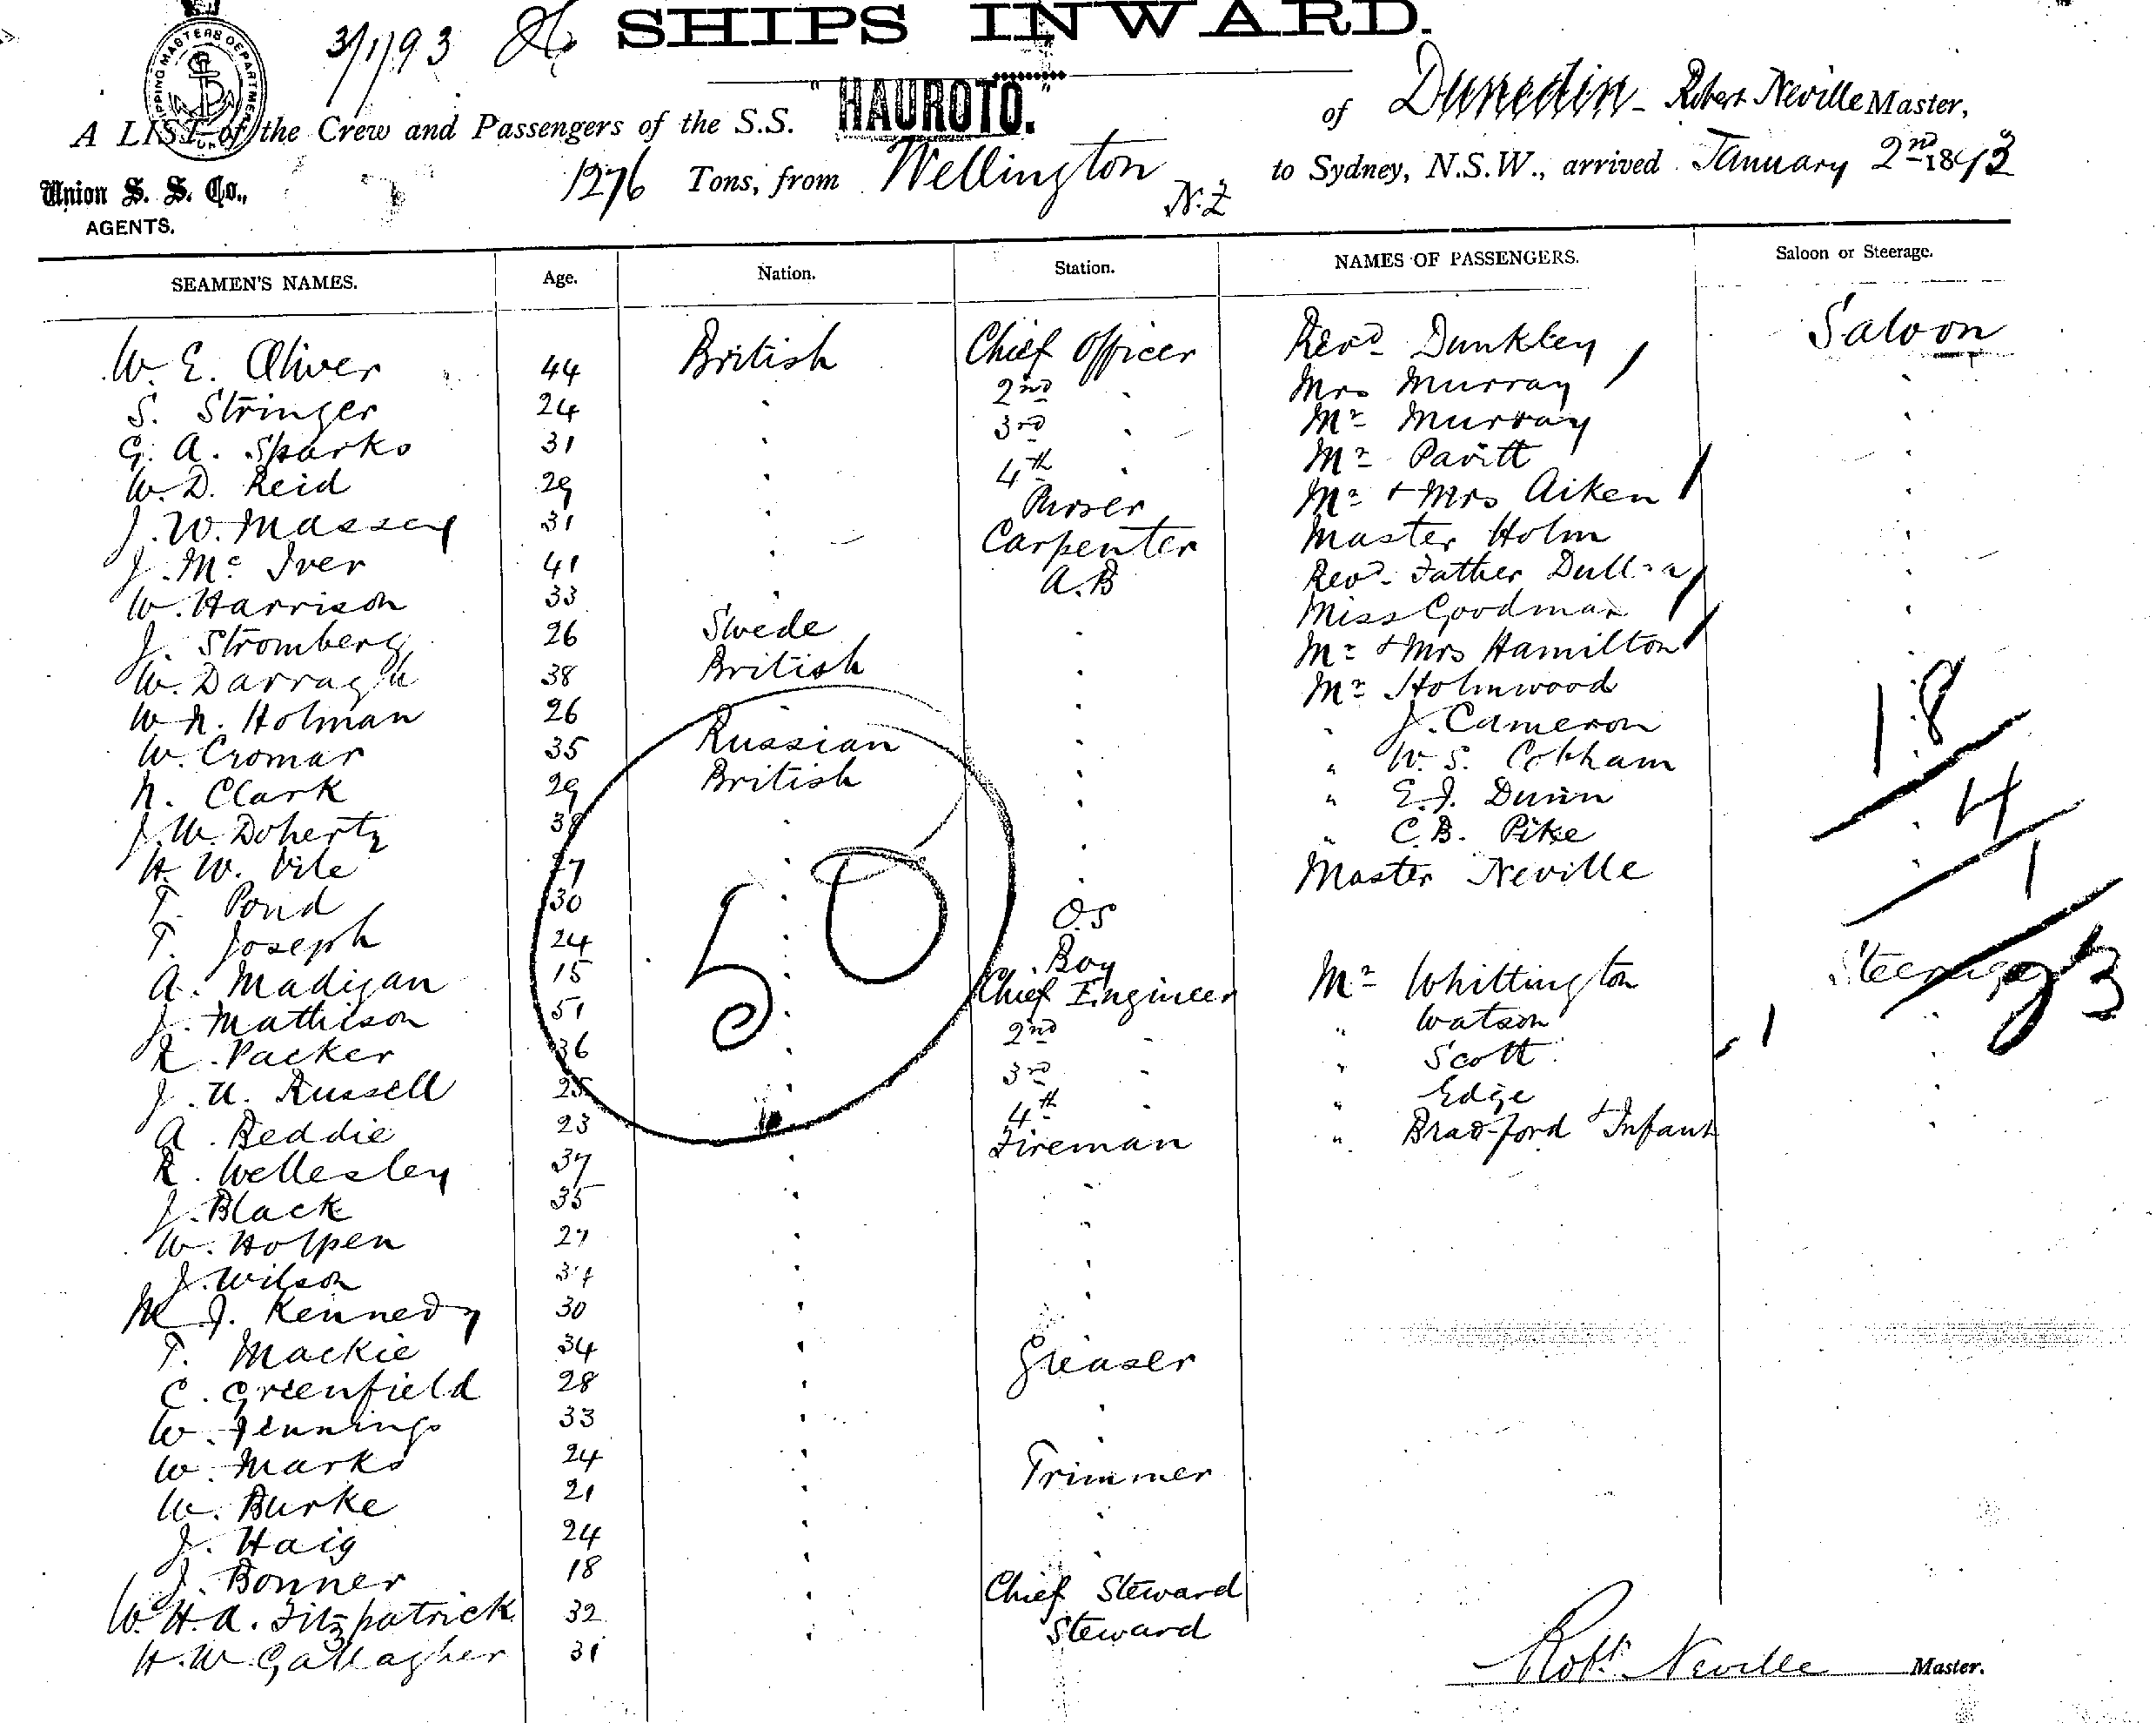 3/1/93 SHIPS INWARD.
SHIPPING MASTERS DEPARTMENT
A LIST of the Crew and Passengers of the S.S. "HAUROTO." of Dunedin - Robert Neville Master,
1276 Tons, from Wellington N.Z to Sydney, N.S.W., arrived January 2nd 1893
Union S. S. Co.,
AGENTS.
SEAMEN'S NAMES. Age. Nation. Station. NAMES OF PASSENGERS. Saloon or Steerage.
W. E. Oliver 44 British Chief Officer Revd Dunkley Saloon
S. Stringer 24 " 2nd " Mrs Murray "
G. A. Sparks 31 " 3rd " Mr Murray "
W. D. Reid 29 " 4th " Mr Pavitt "
J. W. Massey 31 " Purser Mr + Mrs Aiken "
J. Mc Iver 41 " Carpenter Master Holm "
W. Harrison 33 " A.B Revd Father "
J. Stromberg 26 Swede " Miss Goodman "
W. Darragh 38 British " Mr + Mrs Hamilton "
W. N. Holman 26 " " Mr Holmwood "
W. Cromar 35 Russian " " J. Cameron 18
N. Clark 29 British " " W. S. Cobham "
J. W. Doherty 38 " " " E. J. Dunn 4
H. W. Vile 27 " " " C. B. Pike "
T. Pond 30 " " Master Neville 1
T. Joseph 24 " O.S
A. Madigan 15 " Boy
J. Mathison 51 " Chief Engineer Mr Whittington Steerage 23
R. Packer 36 " 2nd " " Watson "
J. U. Russell 25 " 3rd " " Scott 1 "
A. Beddie 23 " 4th " " Edge "
R. Wellesley 37 " Fireman " Bradford + Infant "
J. Black 35 " "
W. Holpen 27 " "
J. Wilson 37 " "
M J. Kennedy 30 " "
T. Mackie 34 " Greaser
C. Greenfield 28 " "
W. Jennings 33 " "
W. Marks 24 " Trimmer
W. Burke 21 " "
J. Haig 24 " "
J. Bonner 18 "
W. H. A. Fitzpatrick 32 " Chief Steward
H. W Gallagher 31 " Steward
50
Robt. Neville Master.